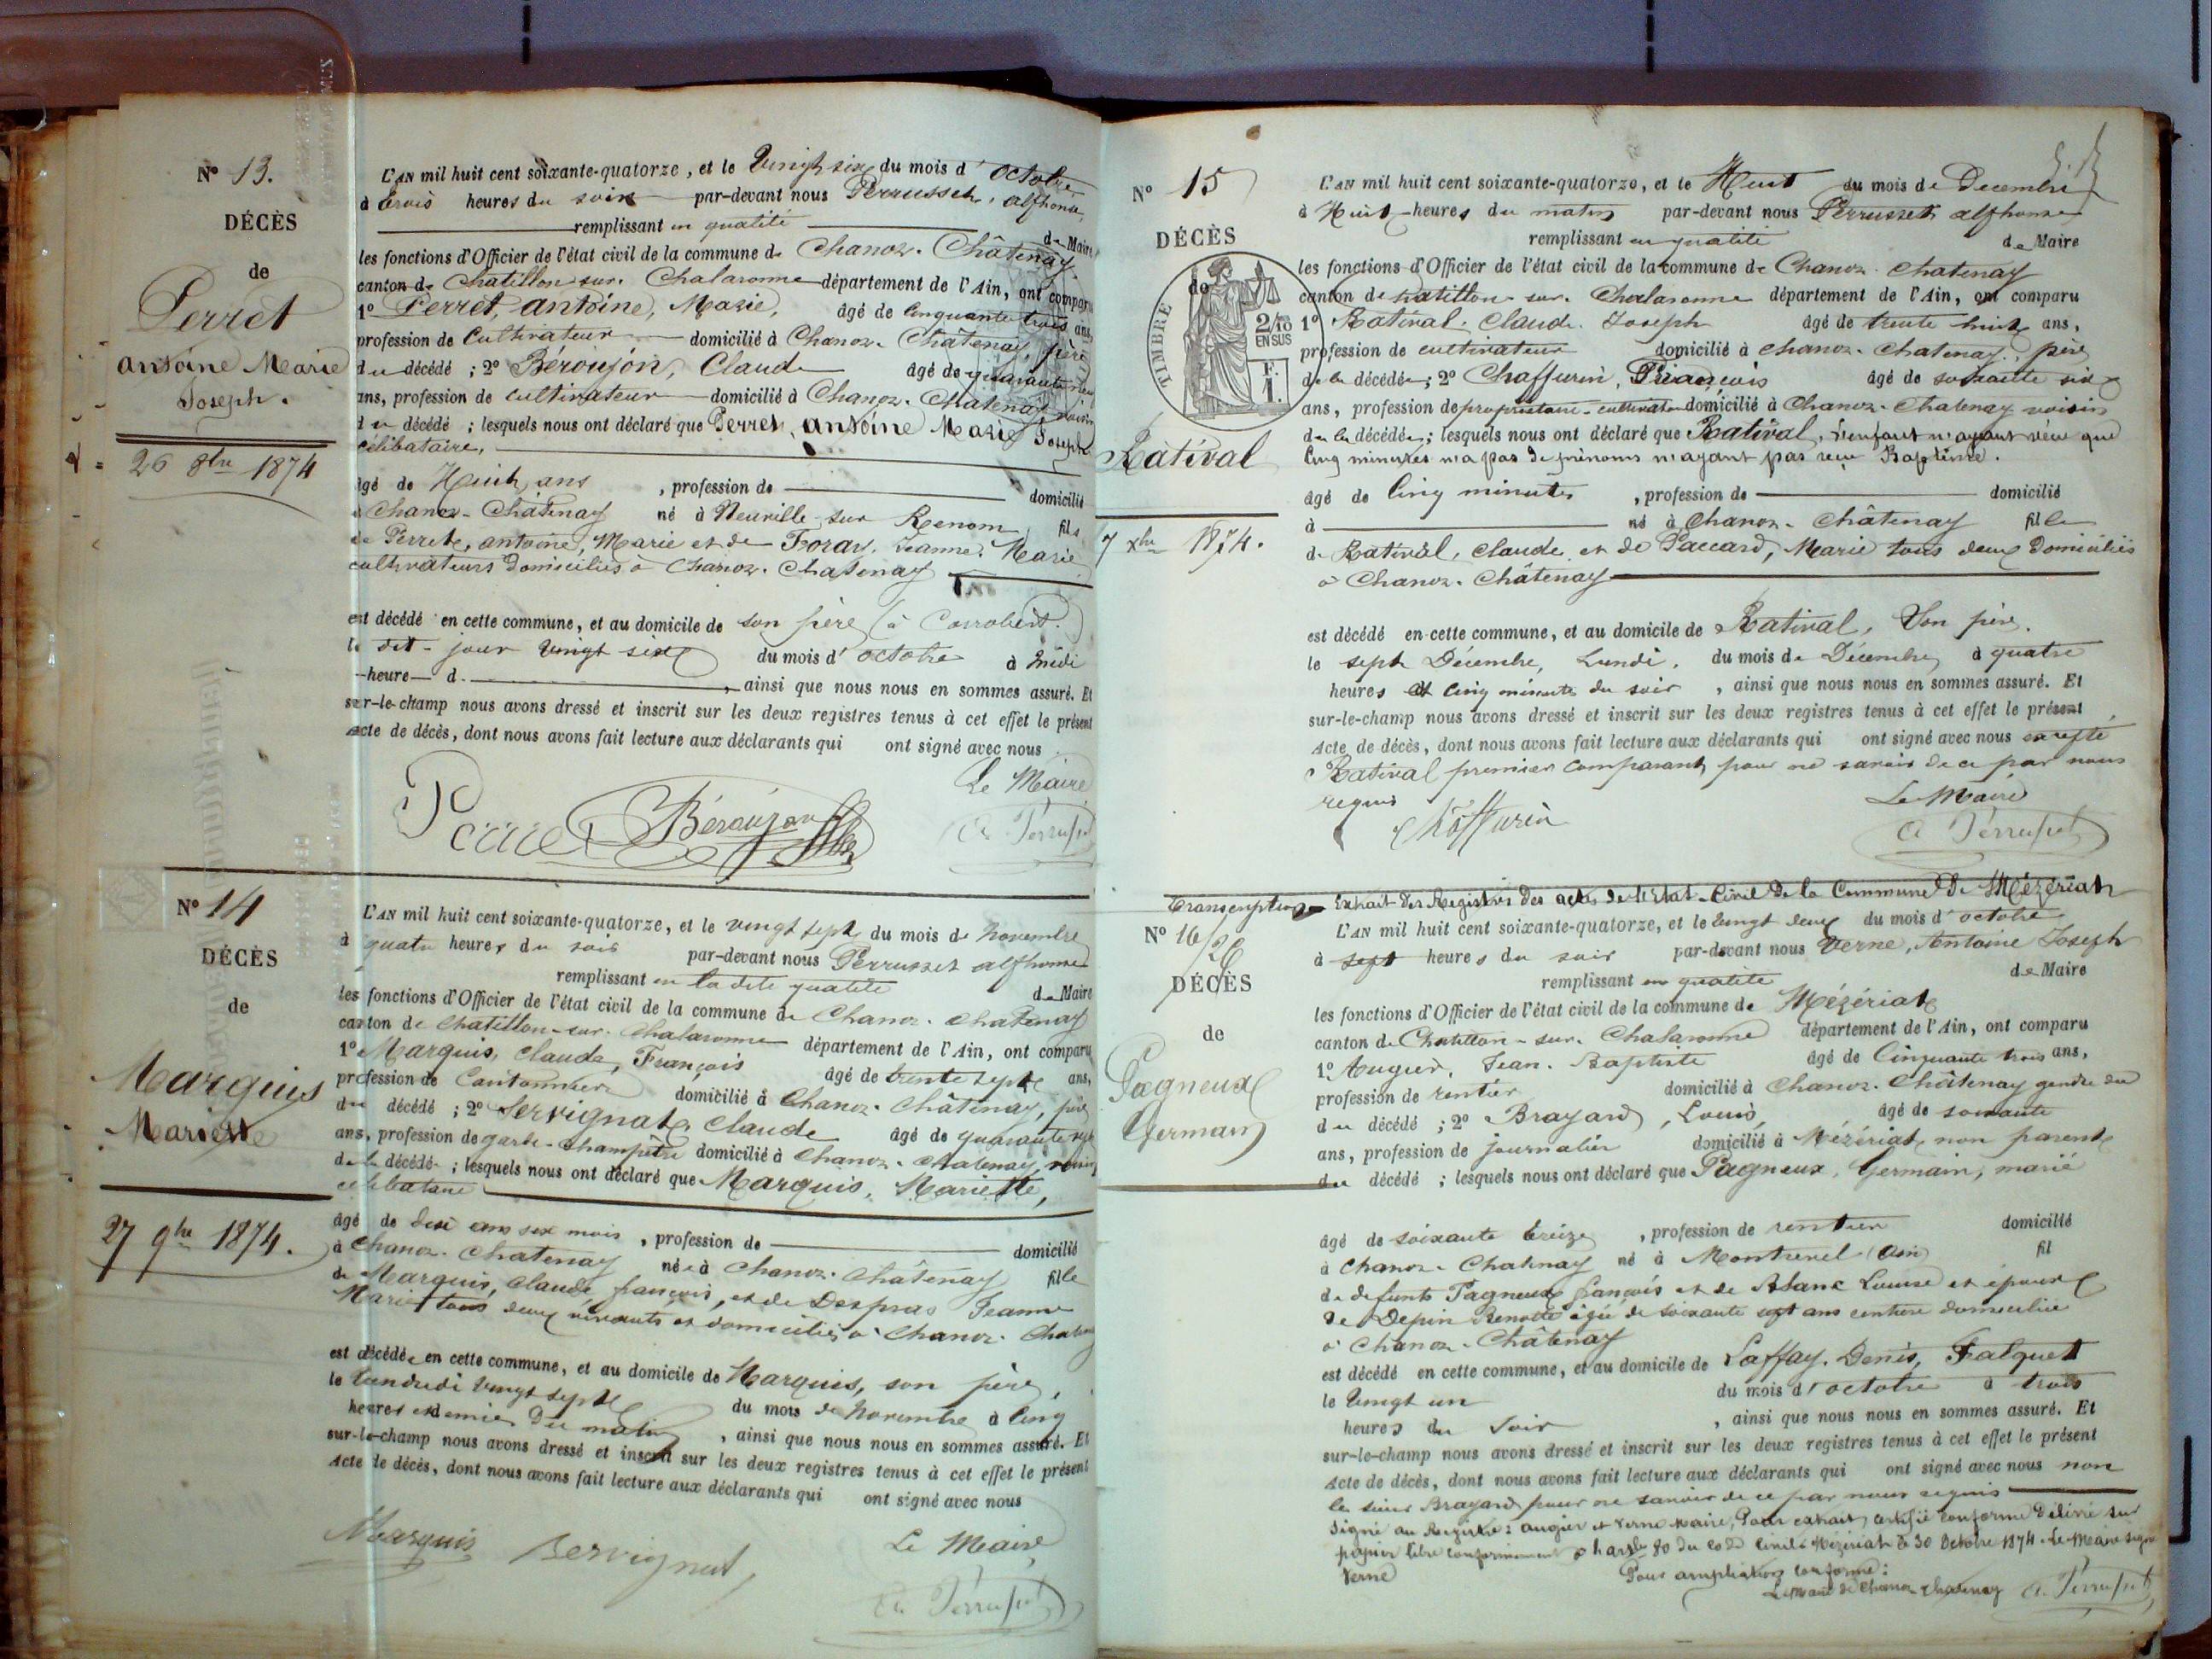 N° 13.
DÉCÈS
de
Perret
antoine Marie
Joseph.
26 8bre 1874
L'AN mil huit cent soixante-quatorze, et le vingt six du mois d'octobre
à trois heures du soir par-devant nous Perrusset, alphonse,
remplissant en qualité de Maire
les fonctions d'Officier de l'état civil de la commune de Chanoz-Châtenay
canton de Chatillon sur Chalaronne département de l'Ain, ont comparu
1° Perret, antoine, Marie, âgé de Cinquante trois ans,
profession de Cultivateur domicilié à Chanoz-Châtenay, père
du décédé ; 2° Béroujon, Claude âgé de quarante
ans, profession de cultivateur domicilié à Chanoz-Chatenay voisin
du décédé ; lesquels nous ont déclaré que Perret, antoine Marie Joseph
célibataire,
âgé de Huit ans, profession de domicilié
à Chanoz-Châtenay né à Neuville sur Renom fils
de Perret, antoine, Marie et de Foray, Jeanne, Marie
cultivateurs domiciliés à Chanoz-Chatenay
est décédé en cette commune, et au domicile de son père (à Corrobert.)
le dit jour vingt six du mois d'octobre à midi
heure d , ainsi que nous nous en sommes assuré. Et
sur-le-champ nous avons dressé et inscrit sur les deux registres tenus à cet effet le présent
Acte de décès, dont nous avons fait lecture aux déclarants qui ont signé avec nous
Le Maire
Perret Béroujon A Perrusset
N° 14
DÉCÈS
de
Marquis
Mariette
27 9bre 1874.
L'AN mil huit cent soixante-quatorze, et le vingt sept du mois de Novembre
à quatre heures du soir par-devant nous Perrusset alphonse
remplissant en la dite qualité de Maire
les fonctions d'Officier de l'état civil de la commune de Chanoz-Chatenay
canton de Chatillon-sur-Chalaronne département de l'Ain, ont comparu
1° Marquis, Claude, François âgé de trente sept ans,
profession de Cantonnier domicilié à Chanoz-Châtenay, père
du décédé ; 2° Servignat, Claude âgé de quarante sept
ans, profession de garde-champêtre domicilié à Chanoz-Chatenay, voisin
de la décédé ; lesquels nous ont déclaré que Marquis, Mariette,
célibataire
âgé de dix ans six mois, profession de domicilié
à Chanoz-Chatenay née à Chanoz-Châtenay fille
de Marquis, Claude françois, et de Despras Jeanne
Marie tous deux vivants et domiciliés à Chanoz-Chatenay
est décédée en cette commune, et au domicile de Marquis, son père,
le Vendredi vingt sept du mois de Novembre à cinq
heures et demie du matin, ainsi que nous nous en sommes assuré. Et
sur-le-champ nous avons dressé et inscrit sur les deux registres tenus à cet effet le présent
Acte de décès, dont nous avons fait lecture aux déclarants qui ont signé avec nous
Marquis Servignat Le Maire
A Perrusset
N° 15
DÉCÈS
de
TIMBRE
2/10 EN SUS
F. 1.
Rativat
7 xbre 1874.
L'AN mil huit cent soixante-quatorze, et le Huit du mois de Decembre
à Huit heures du matin par-devant nous Perrusset alphonse
remplissant en qualité de Maire
les fonctions d'Officier de l'état civil de la commune de Chanoz-Chatenay
canton de Chatillon-sur-Chalaronne département de l'Ain, ont comparu
1° Rativat Claude Joseph âgé de trente huit ans,
profession de cultivateur domicilié à Chanoz-Chatenay, père
de la décédée ; 2° Chaffurin, François âgé de soixante six
ans, profession de propriétaire-cultivateur domicilié à Chanoz-Chatenay voisin
de la décédée ; lesquels nous ont déclaré que Rativat, l'enfant n'ayant vécu que
Cinq minutes n'a pas de prénoms n'ayant pas reçu Baptême.
âgé de Cinq minutes, profession de domicilié
à né à Chanoz-Châtenay fille
de Rativat, Claude et de Paccard, Marie tous deux domiciliés
à Chanoz-Châtenay
est décédé en cette commune, et au domicile de Rativat, Son père.
le sept Décembre, Lundi, du mois de Décembre à quatre
heures et Cinq minutes du soir, ainsi que nous nous en sommes assuré. Et
sur-le-champ nous avons dressé et inscrit sur les deux registres tenus à cet effet le présent
Acte de décès, dont nous avons fait lecture aux déclarants qui ont signé avec nous excepté
Rativat premier comparant pour ne savoir de ce par nous
requis
Le Maire
Chaffurin A Perrusset
Transcription Extrait des Registres des actes de l'Etat-Civil de la Commune de Mézériat
N° 16
DÉCÈS
de
Pagneux
Germain
L'AN mil huit cent soixante-quatorze, et le vingt deux du mois d'octobre
à sept heures du soir par-devant nous Verne, Antoine Joseph
remplissant en qualité de Maire
les fonctions d'Officier de l'état civil de la commune de Mézériat
canton de Chatillon-sur-Chalaronne département de l'Ain, ont comparu
1° Augier, Jean-Baptiste âgé de Cinquante trois ans,
profession de rentier domicilié à Chanoz-Châtenay gendre du
du décédé ; 2° Brayard, Louis, âgé de soixante
ans, profession de journalier domicilié à Mézériat, non parent
du décédé ; lesquels nous ont déclaré que Pagneux, Germain, marié
âgé de soixante treize, profession de rentier domicilié
à Chanoz-Chatenay né à Montrevel (Ain) fil
de defunts Pagneux françois et de Blanc Louise et époux
de Depin Benoîte âgée de soixante sept ans rentière domiciliée
à Chanoz-Châtenay
est décédé en cette commune, et au domicile de Laffay, Denis, Falquet
le vingt un du mois d'octobre à trois
heures du Soir, ainsi que nous nous en sommes assuré. Et
sur-le-champ nous avons dressé et inscrit sur les deux registres tenus à cet effet le présent
Acte de décès, dont nous avons fait lecture aux déclarants qui ont signé avec nous non
le sieur Brayard pour ne savoir de ce par nous requis
Signé au Registre: augier et Verne Maire, Pour extrait certifié conforme Délivré sur
papier libre conformément à l'article 80 du code Civil. Mézériat le 30 Octobre 1874. Le Maire signé
Verne Pour ampliation conforme:
Le Maire de Chanoz Chatenay A. Perrusset